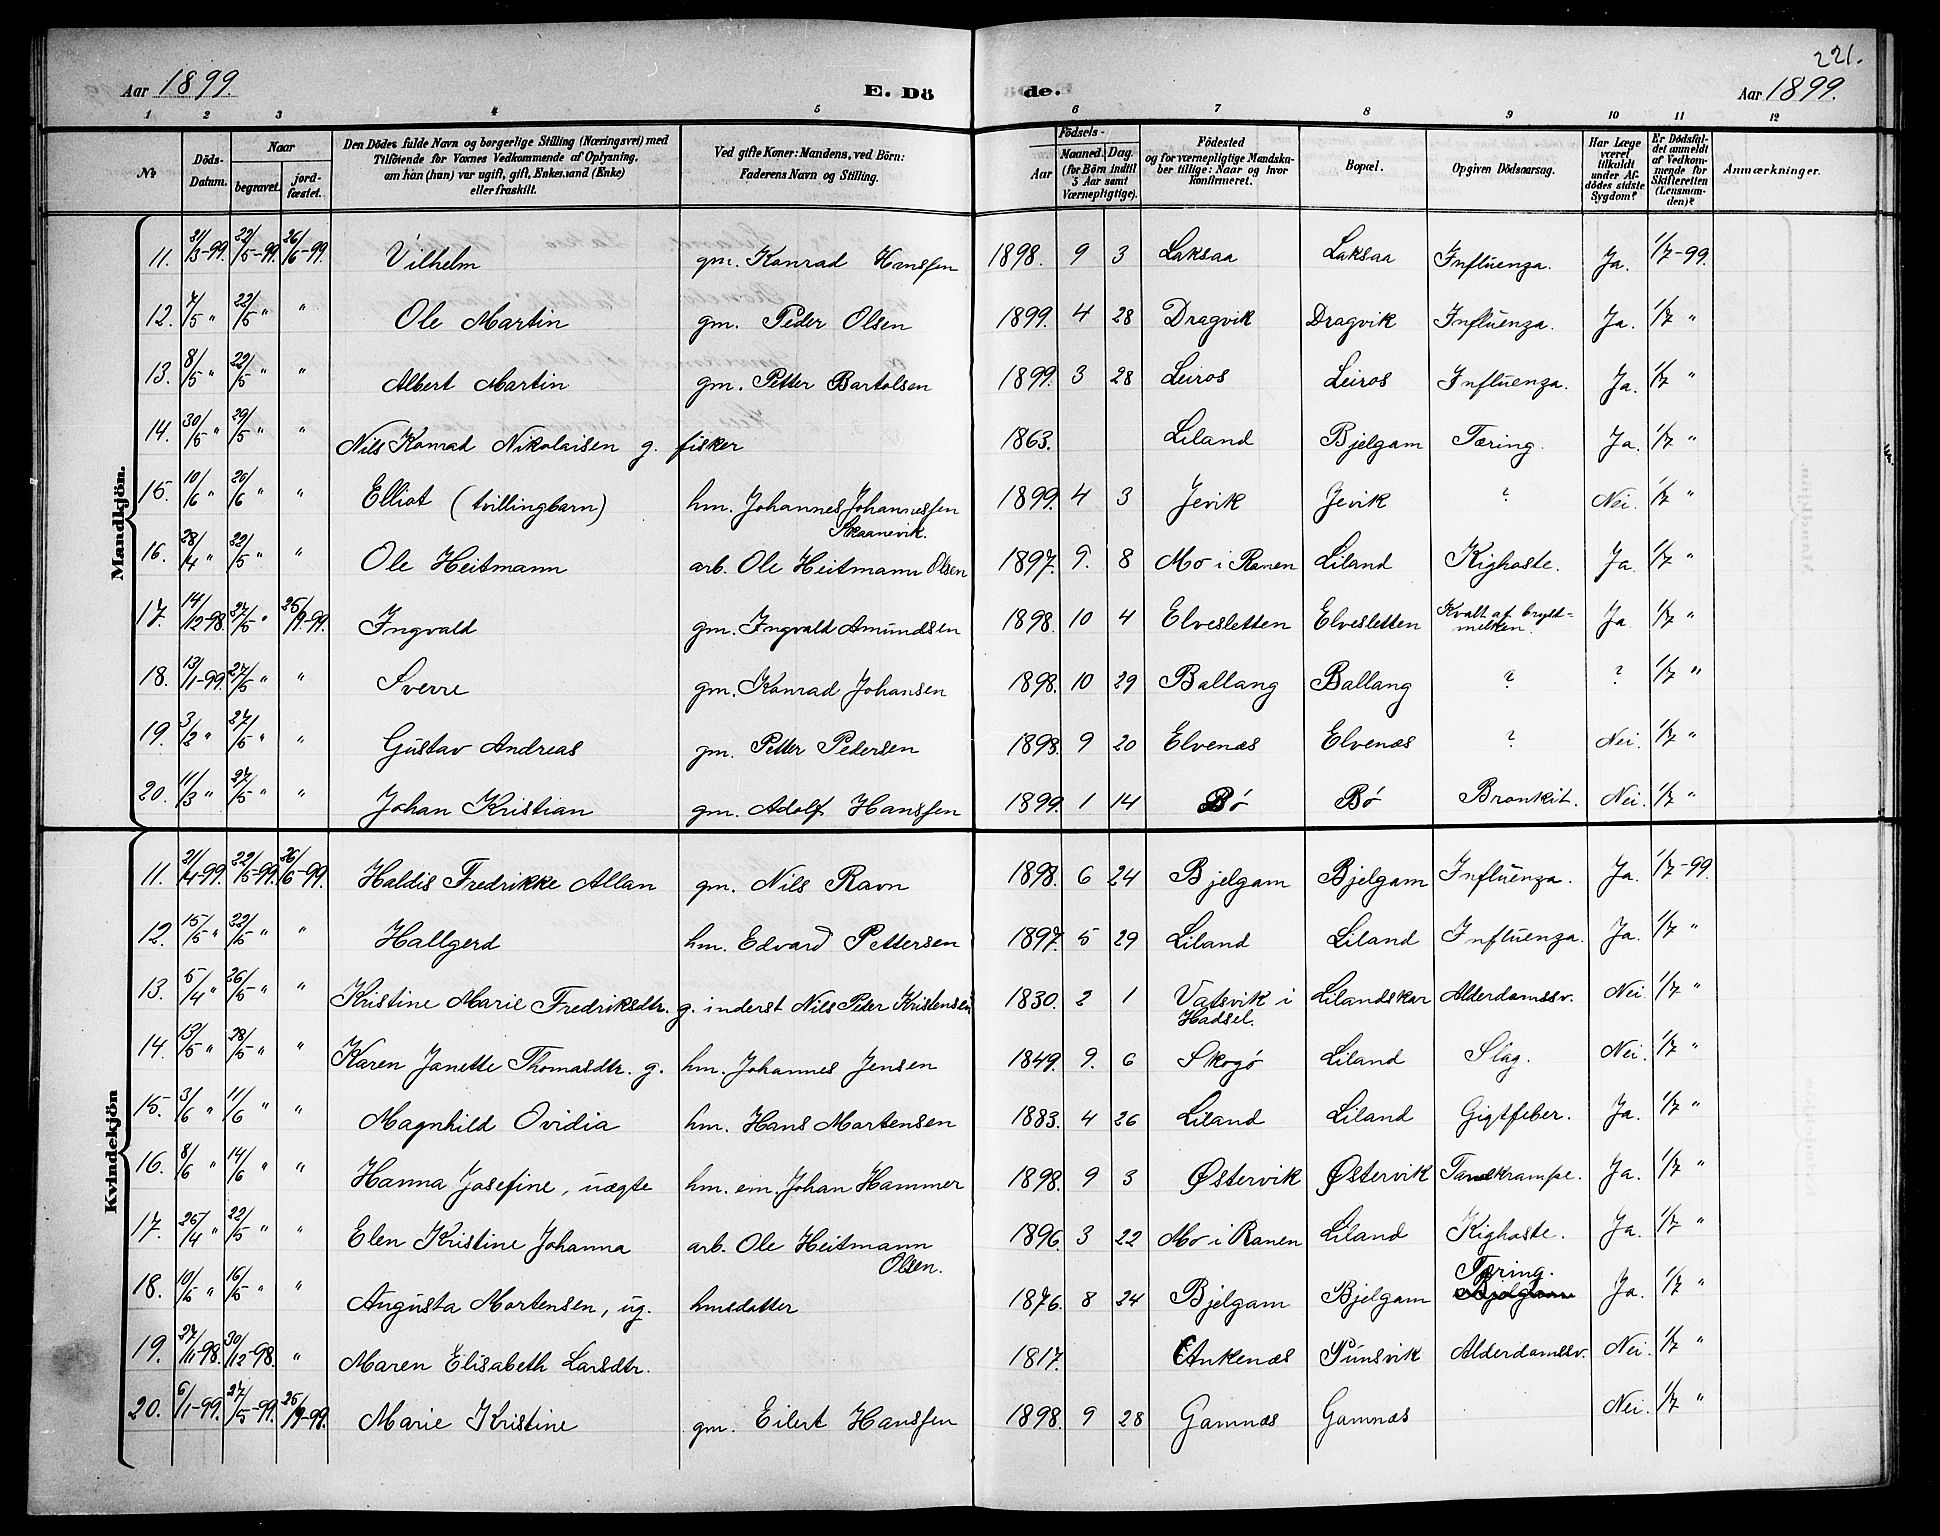 221.
Aar 1899. E. Dö de. Aar 1899.
1 2 3 4 5 6 7 8 9 10 11 12
No Döds-Datum. Naar begravet. jordfæstet. Den Dödes fulde Navn og borgerlige Stilling (Næringsvei) med Tilföiende for Voxnes Vedkommende af Oplysning, om han (hun) var ugift, gift, Enkemand (Enke) eller fraskilt. Ved gifte Koner: Mandens, ved Börn: Faderens Navn og Stilling. Födsels- Aar Maaned. Dag. (for Börn indtil 5 Aar samt Værnepligtige). Födested og for værnepligtige Mandskaber tillige: Naar og hvor Konfirmeret. Bopæl. Opgiven Dödsaarsag. Har Læge været tilkaldt under Afdödes sidste Sygdom? Er Dödsfaldet anmeldt af Vedkommende for Skifteretten (Lensmanden)? Anmærkninger.
Mandkjön.
11. 21/3-99 22/5-99 26/6-99 Vilhelm gm. Konrad Hanssen 1898. 9 3 Laksaa Laksaa Influenza. Ja. 1/7-99.
12. 7/5 " 22/5 " " Ole Martin gm. Peder Olsen 1899. 4 28 Dragvik Dragvik Influenza. Ja. 1/7 "
13. 8/5 " 22/5 " " Albert Martin gm. Petter Bartolsen 1899. 3 28 Leiros Leiros Influenza. Ja. 1/7 "
14. 30/5 " 29/5 " " Nils Konrad Nikolaisen g. fisker 1863. Liland Bjelgam Tæring. Ja. 1/7 "
15. 10/6 " 20/6 " " Elliot (tvillingbarn) hm. Johannes Johannessen Skaanevik. 1899. 4 3 Jevik Jevik ? Nei. 1/7 "
16. 28/4 " 22/5 " " Ole Heitmann arb. Ole Heitmann Olsen 1897. 9. 8 Mo i Ranen Liland Kighoste. Ja. 1/7 "
17. 14/12-98. 27/5 " 25/9-99. Ingvald gm. Ingvald Amundsen 1898. 10 4 Elvesletten Elvesletten Kvalt af brystmelken. Ja. 1/7 "
18. 13/1-99. 27/5 " " Sverre gm. Konrad Johansen 1898. 10 29 Ballang Ballang ? ? 1/7 "
19. 3/2 " 27/5 " " Gustav Andreas gm. Petter Pedersen 1898. 9 20 Elvenæs Elvenæs ? Nei. 1/7 "
20. 11/3 " 27/5 " " Johan Kristian gm. Adolf Hanssen 1899. 1 14 Bø Bø Bronkit. Nei. 1/7 "
Kvindekjön
11. 21/4-99. 22/5-99. 26/6-99. Haldis Fredrikke Allan gm. Nils Ravn 1898. 6 24 Bjelgam Bjelgam Influenza. Ja. 1/7-99.
12. 15/5 " 22/5 " " Hallgerd hm. Edvard Pettersen 1897. 5 29 Liland Liland Influenza. Ja. 1/7 "
13. 5/4 " 26/5 " " Kristine Marie Fredriksdtr. g. inderst Nils Peder Kristensen 1830. 2 1 Vatsvik i Hadsel. Lilandskar Alderdomssv. Nei. 1/7 "
14. 13/5 " 28/5 " " Karen Janette Thomasdtr. g. hm. Johannes Jensen 1849. 9. 6 Skogø Liland Slag. Nei. 1/7 "
15. 3/6 " 11/6 " " Magnhild Ovidia hm. Hans Mortensen 1883. 4 26 Liland Liland Gigtfeber. Ja. 1/7 "
16. 8/6 " 14/6 " " Hanna Josefine, uægte hm. em. Johan Hammer 1898. 9 3 Østervik Østervik Tandkrampe. Ja. 1/7 "
17. 26/4 " 22/5 " " Elen Kristine Johanna arb. Ole Heitmann Olsen. 1896. 3 22 Mo i Ranen Liland Kighoste. Ja. 1/7 "
18. 10/5 " 16/5 " " Augusta Mortensen, ug. hmsdatter 1876. 8 24 Bjelgam Bjelgam Tæring. Bjelgam Ja. 1/7 "
19. 27/11-98. 30/12-98. " Maren Elisabeth Larsdtr. 1817. Ankenæs Punsvik Alderdomssv. Nei. 1/7 "
20. 6/1-99. 27/5-99. 25/9-99. Marie Kristine gm. Eilert Hanssen 1898. 9 28 Gamnæs Gamnæs Nei. 1/7 "